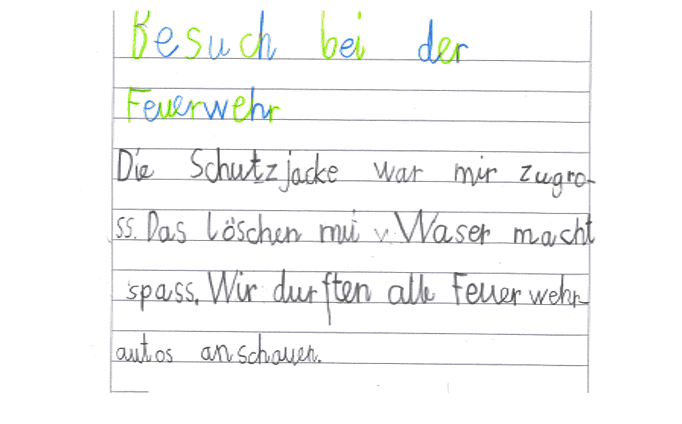 Besuch bei der
Feuerwehr
Die Schutzjacke war mir zugro-
ss. Das löschen mit Waser macht
spass. Wir durften alle Feuerwehr-
autos anschauen.